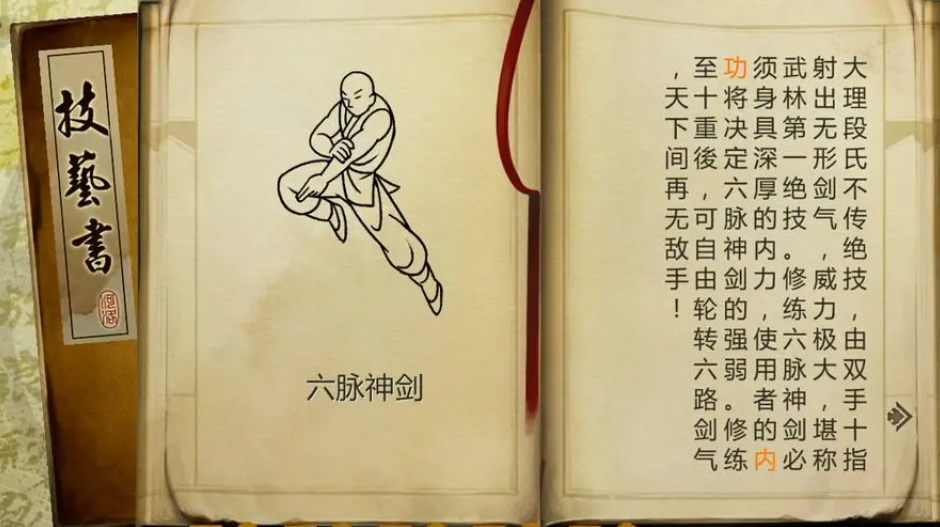 技藝書
六脉神剑
大理段氏不传绝技，由双手十指
射出无形剑气，威力极大，堪称
武林第一绝技。修练六脉神剑必
须身具深厚的内力，使用者的内
功将决定六脉神剑的强弱。修练
至十重後，可自由轮转六路剑气
，天下间再无敌手！